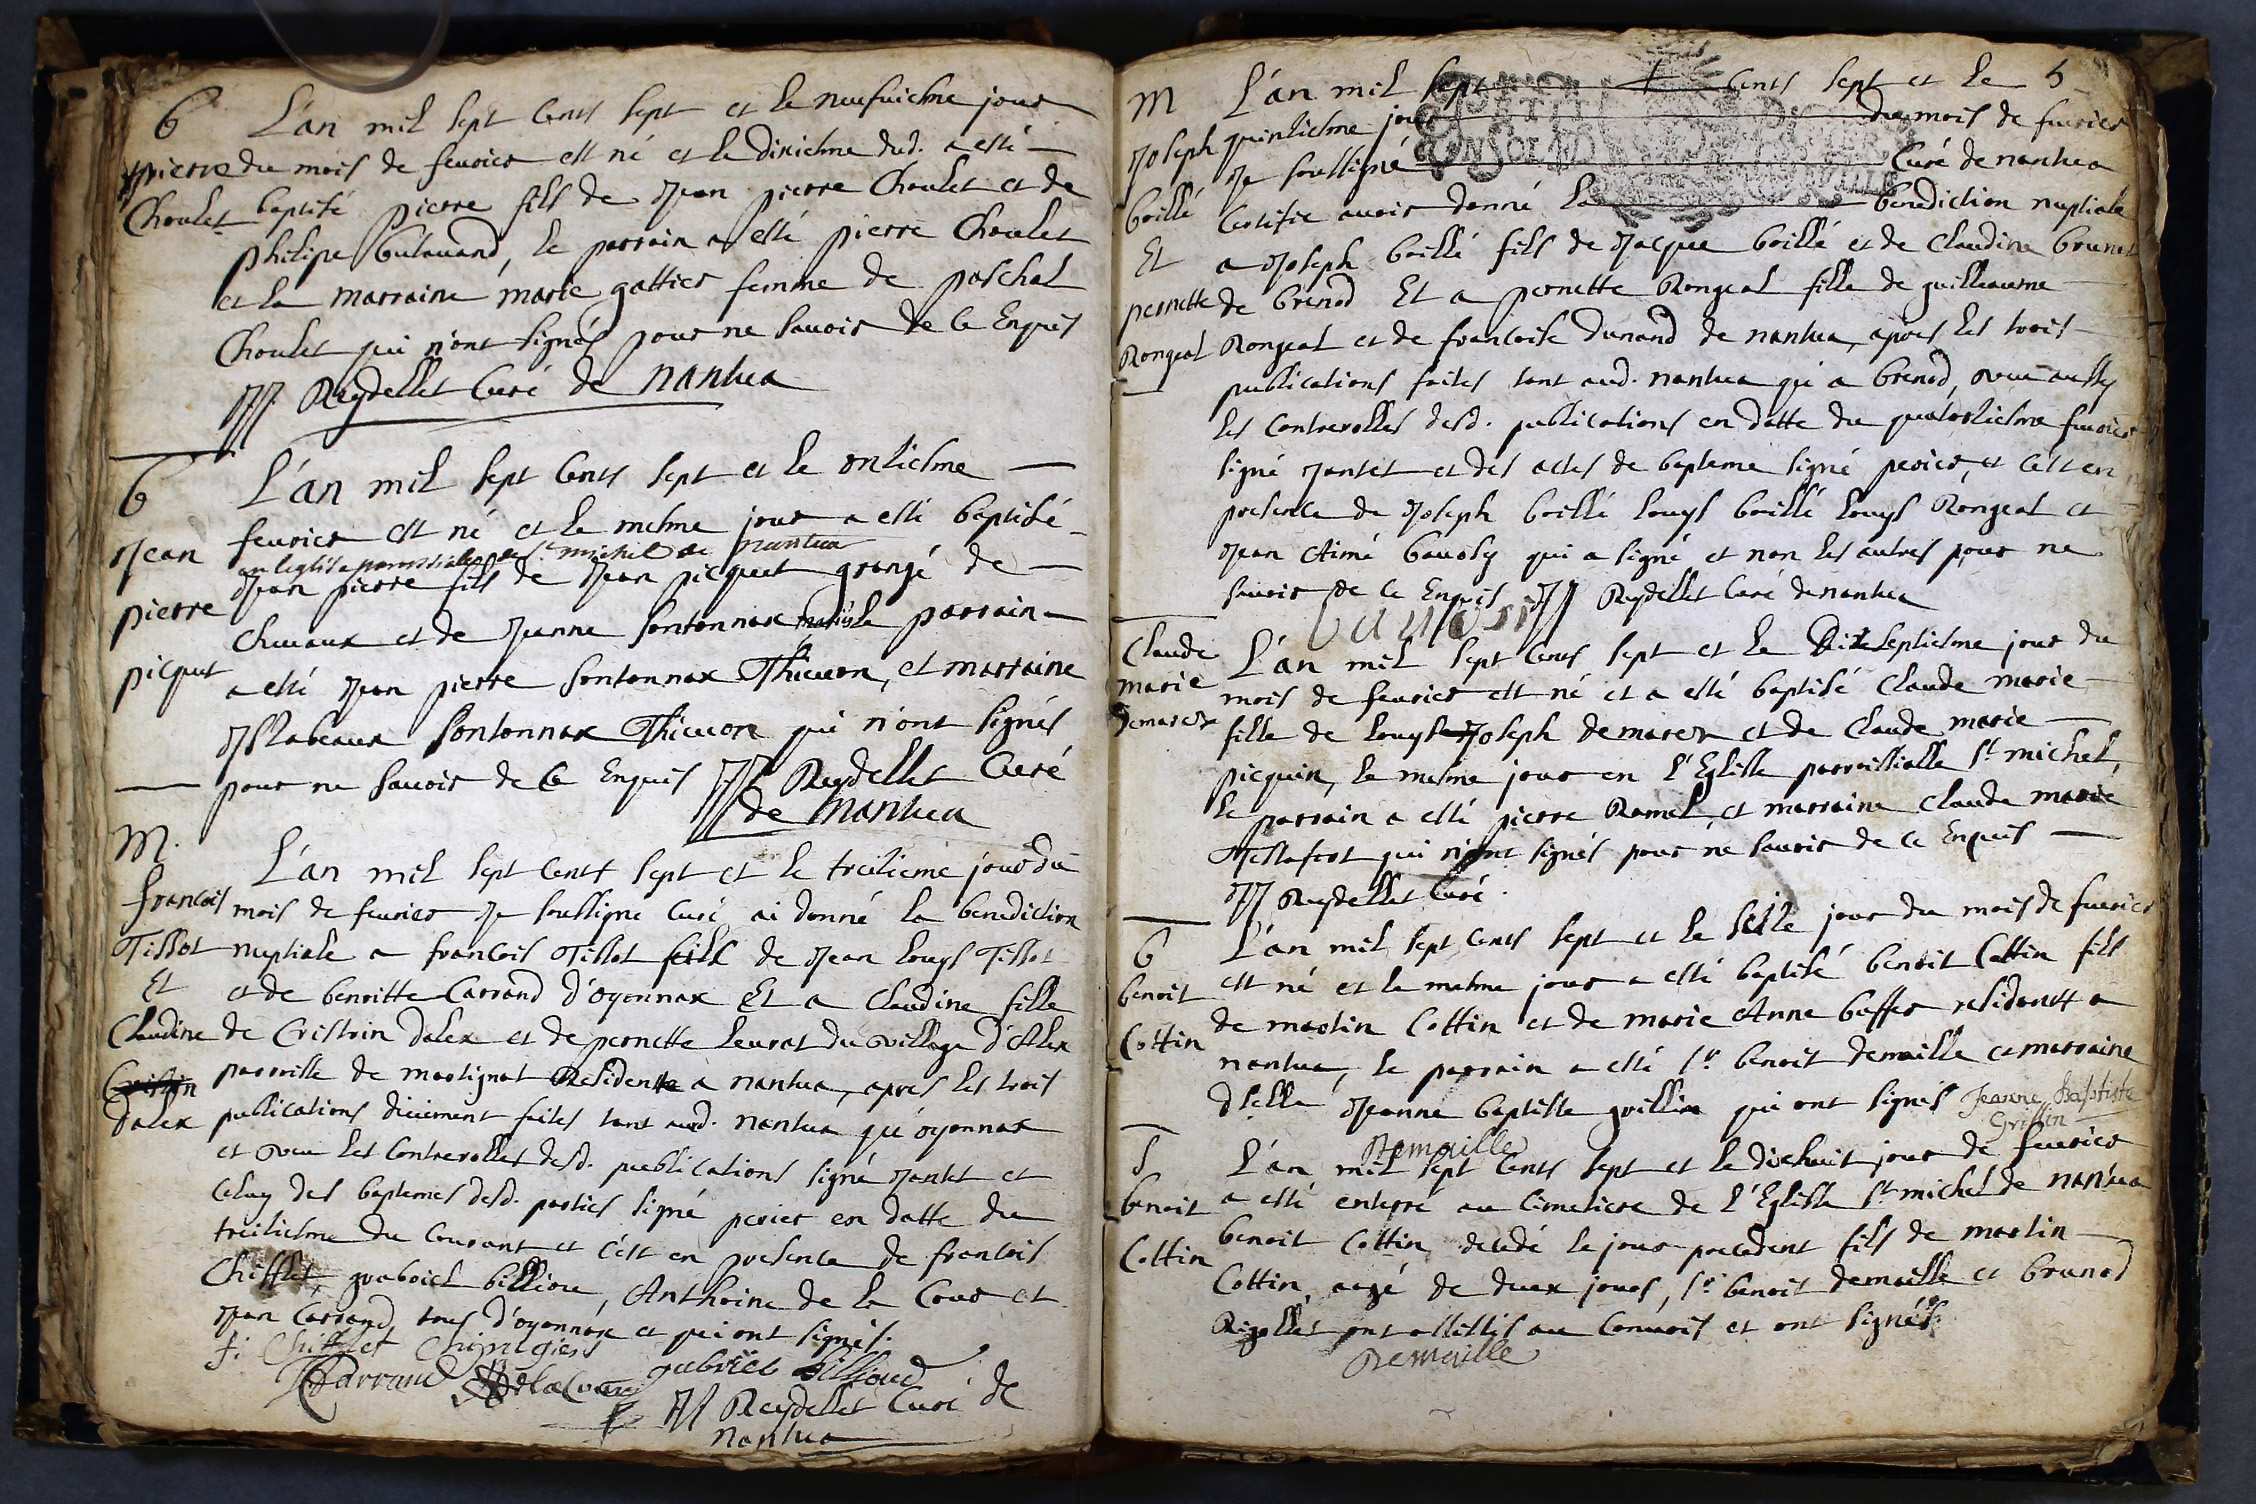 B
pierre
Choulet
L'an mil sept Cents sept et le neufuiesme jour
du mois de feurier est né et le dixiesme dud. a esté
baptisé pierre fils de Jean pierre Choulet et de
philipe Gulauand, le parrain a esté pierre Choulet
et la marraine marie gattier femme de paschal
Choulet qui n'ont signés pour ne sauoir de ce Enquis
JJ Reydellet Curé de nantua
B
Jean
pierre
picquet
L'an mil sept Cents sept et le onziesme
feurier est né et le mesme jour a esté baptisé
en leglise parrossialle de st michel de nantua
Jean pierre fils de Jean picquet grangé de
cheuaux et de Jeanne sontonnax le parrain
a esté Jean pierre sontonnax Thieuon, et marraine
Jsabeaux sontonnax Thieuon qui n'ont signés
pour ne sauoir de ce Enquis JJ Reydellet Curé
de Nantua
M.
francois
Tissot
Et
Claudine
Cristin
dalex
L'an mil sept Cents sept et le treizieme jour du
mois de feurier Je soussigne Curé ai donné la benediction
nuptiale a francois Tissot fils de Jean Louys Tissot
et de benoitte Carrand d'oyonnax Et a Claudine fille
de Cristin dalex et de pernette Leurat du village d'Alex
parroisse de martignat Residente a nantua, apres les trois
publications düement faites tant aud. nantua qu'oyonnax
et veu les Controolles desd. publications signé Jantet et
celuy des baptemes desd. parties signé perier en datte du
treiziesme du Courant et c'est en presence de francois
Chifflet, gabriel billion, Anthoine de la Cour et
Jean Carrand, tous d'oyonnax et qui ont signés.
f: Chifflet Chirugiens
JCarrand Delacour gabriel billioud
JJ Reydellet Curé de
nantua
5
M
Joseph
boillé
Et
pernette
Rongeat
L'an mil sept Cents sept et le
quinziesme jour du mois de feurier
Je soussigné Curé de nantua
Certifie auoir donné la benediction nuptiale
a Joseph boillé fils de Jacque boillé et de Claudine brunet
de brenod Et a pernette Rongeat fille de guilleaume
Rongeat et de francoise dunand de nantua, apres les trois
publications faites tant aud. nantua qu'a brenod, veu aussy
les Controolles desd. publications en datte du quatorziesme feurier
signé Jantet et des actes de bapteme signé perier, et c'est en
presence de Joseph boillé Louys boillé Louys Rongeat et
Jean Aimé bauosy qui a signé et non les autres pour ne
sauoir de ce Enquis JJ Reydellet Curé de nantua
bauosi
Claude
marie
Demarex
L'an mil sept Cents sept et le Dixseptiesme jour du
mois de feurier est né et a esté baptisé Claude marie
fille de Louys Joseph demarex et de Claude marie
picquin, le mesme jour en l'Eglisse parroissialle st michel,
le parrain a esté pierre Ramel et marraine Claude marie
Testafort qui n'ont signés pour ne sauoir de ce Enquis
JJ Reydellet Curé.
B
benoit
Cottin
L'an mil sept Cents sept et le seize jour du mois de feurier
est né et le mesme jour a esté baptisé benoit Cottin fils
de martin Cottin et de marie Anne baffer residents a
nantua, le parrain a esté sr benoit demaille et marraine
dselle Jeanne baptiste griffin qui ont signés Jeanne Baptiste
Griffin
Demaille
S
benoit
Cottin
L'an mil sept Cents sept et le dixhuit jour de feurier
a esté enterré au Cimetiere de l'Eglisse st michel de nantua
benoit Cottin decedé le jour precedent fils de martin
Cottin, aagé de deux jours, sr benoit demaille et brunod
Rigollet ont assistés au Conuois et ont signés.
Demaille